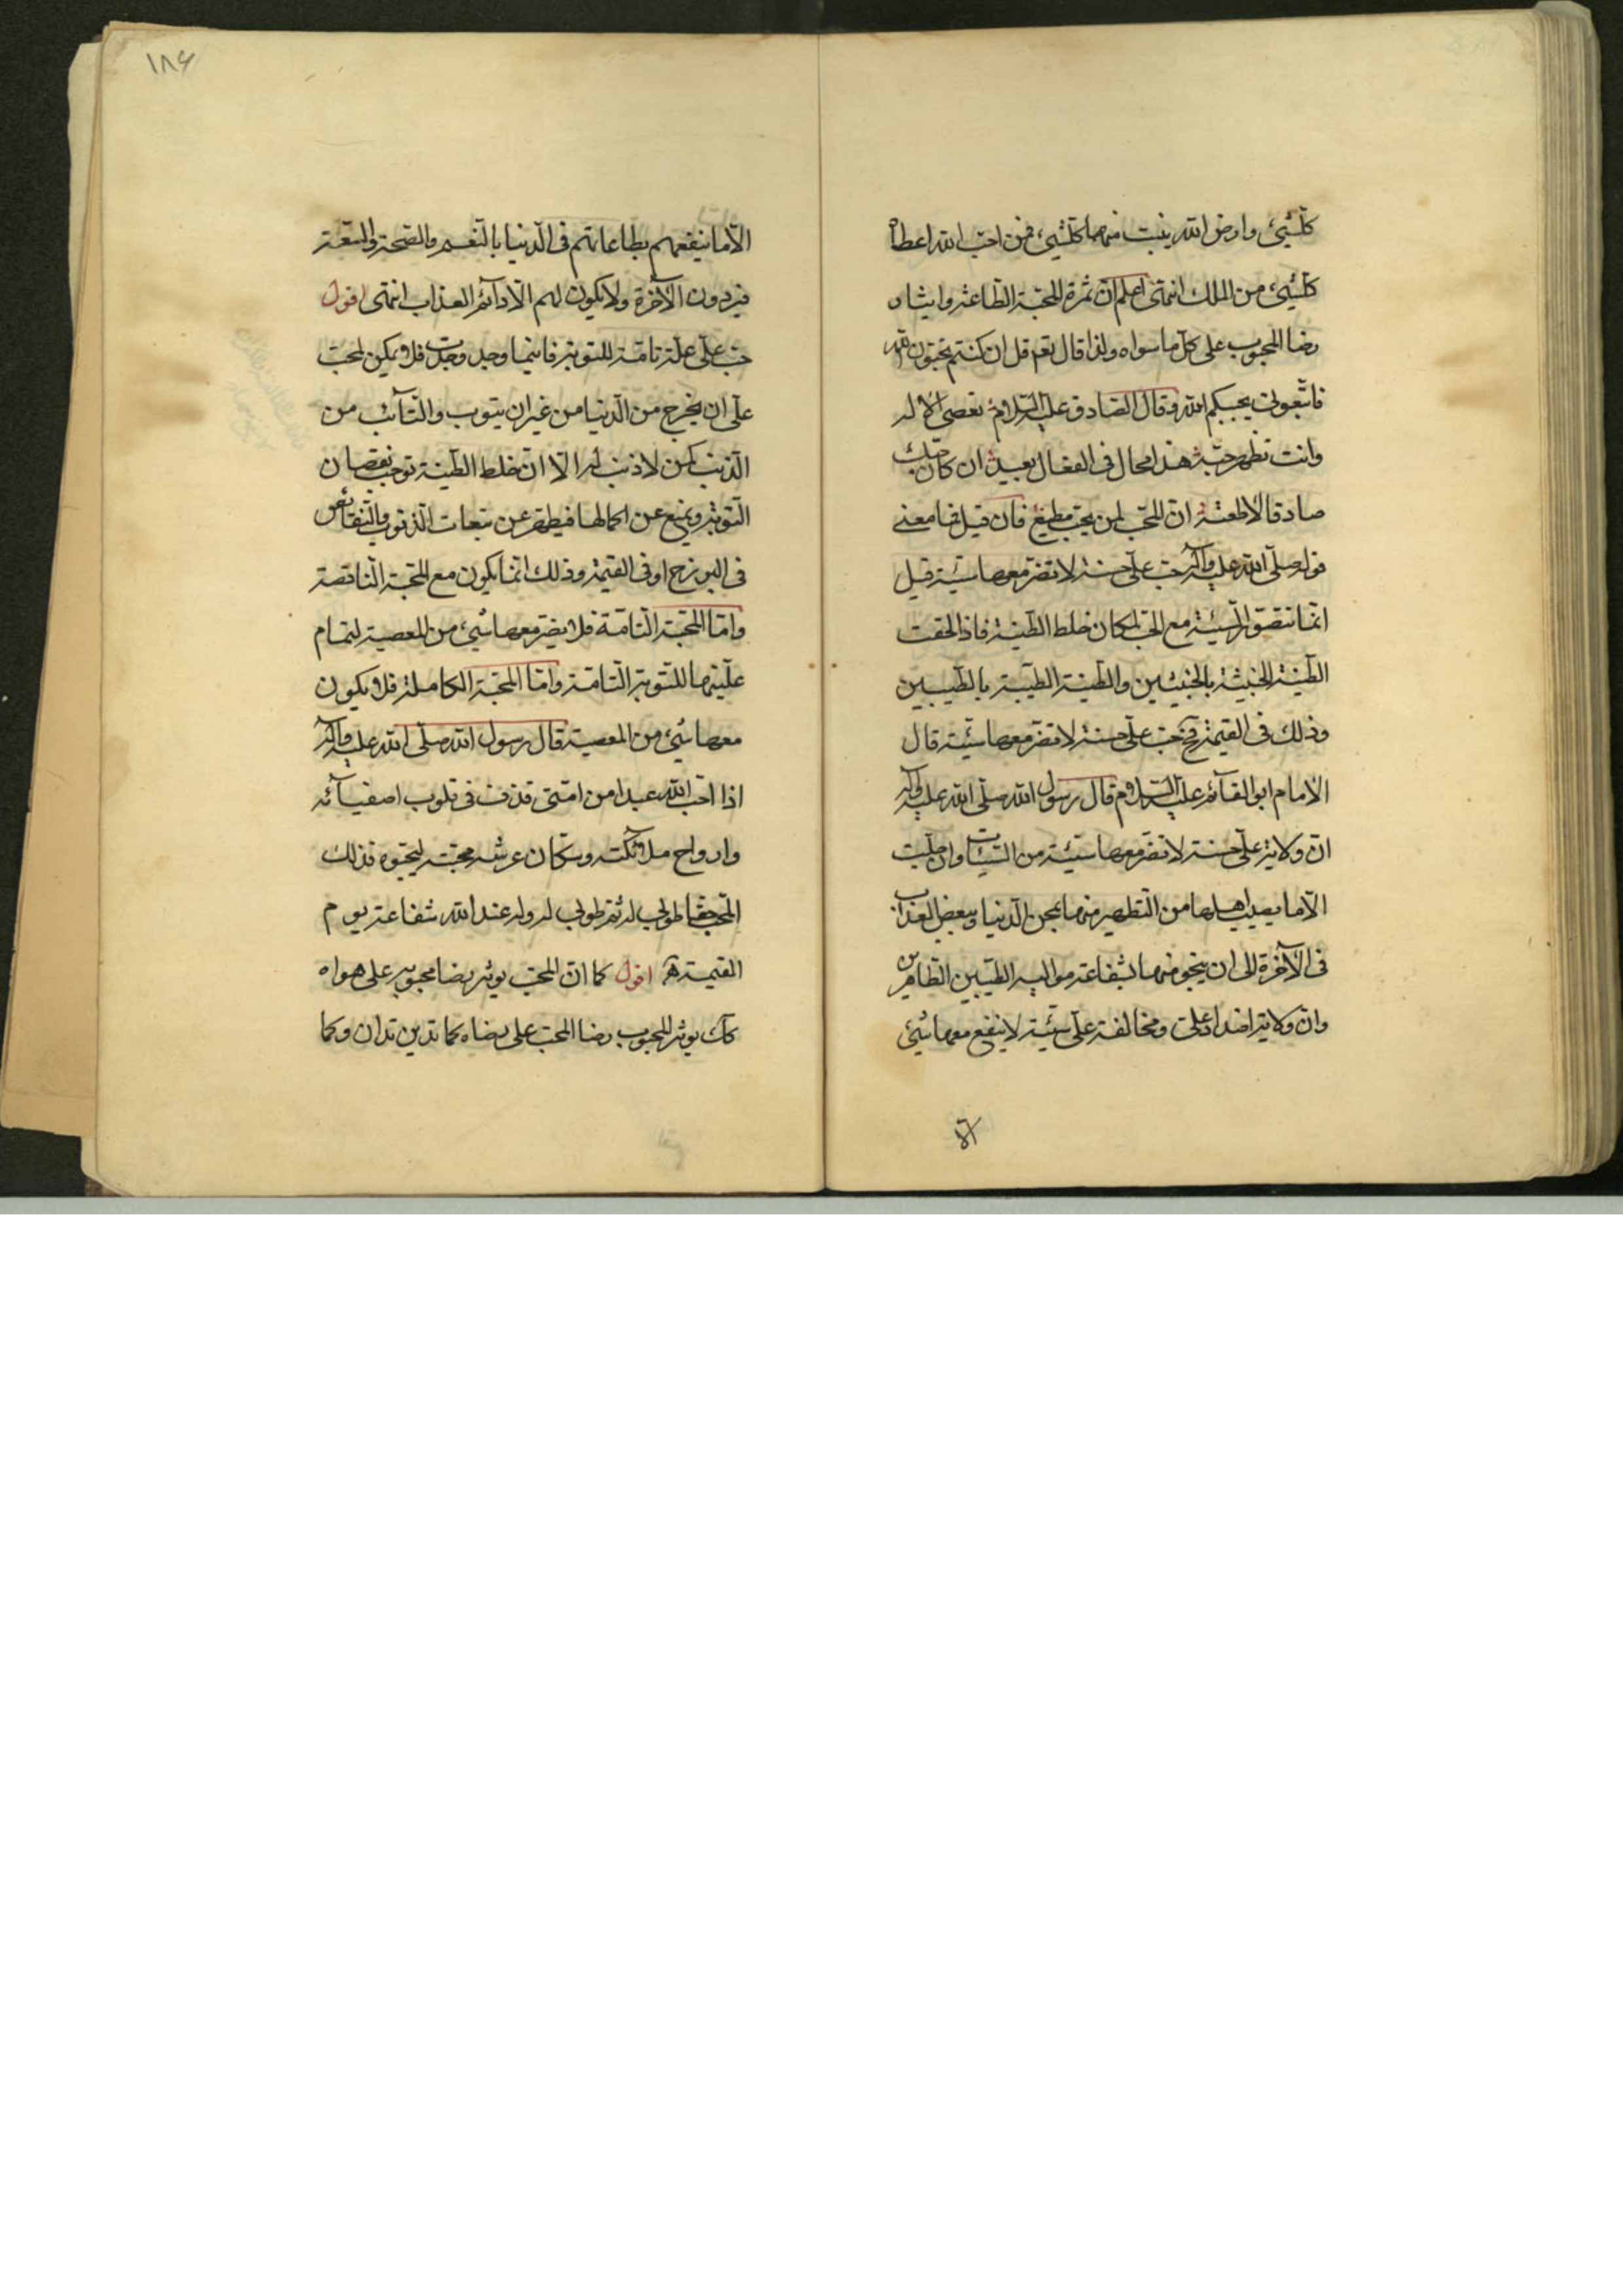 كلّشيئ وارض الله ينبت منها كلّشيئ فمن احبّ الله اعطاه
كلّشيئ من الملك انتهى اعلم انّ ثمرة المحبّة الطّاعة وايثار
رضا المحبوب على كلّ ما سواه ولذا قال تعم قل ان كنتم تحبّون الله
فاتّبعونى يحببكم الله وقال الصّادق عليه السّلام تعصى الاله
وانت تظهر حبّه هذا محال فى الفعال بديع ان كان حبّك
صادقا لاطعته انّ المحبّ لمن يحبّ مطيع فان قيل فما معنى
قوله صلّى الله عليه وآله حبّ علىّ حسنة لا تضرّ معها سيّئة قيل
انّما تتصوّر السّيّئة مع الحبّ لمكان خلط الطّينة فاذا لحقت
الطّينة الخبيثة بالخبيثين والطّينة الطّيبة بالطّيبين
وذلك فى القيمة فح حبّ علىّ حسنة لا تضرّ معها سيّئة قال
الامام ابو القائم عليه السّلام قال رسول الله صلّى الله عليه وآله
انّ ولاية علىّ حسنة لا تضرّ معها سيّئة من السّيّئات وان جلّت
الّا ما يصيب اهلها من التّطهير منها بمحن الدّنيا وببعض العذاب
فى الآخرة الى ان ينجو منها بشفاعة مواليه الطّيّبين الطّاهرين
وانّ ولاية اضداد علىّ ومخالفة علىّ سيّئة لا ينفع معها شيئ
الّا ما ينفعهم بطاعاتهم فى الدّنيا بالنّعم والصّحة والسّعة
فيردون الآخرة ولا يكون لهم الّا دائم العذاب انتهى اقول
حبّ علىّ علّة تامّة للتّوبة فاينما وجد وجدت فلا يمكن لمحبّ
علىّ ان يخرج من الدّنيا من غير ان يتوب والتّائب من
الذّنب كمن لا ذنب له الّا انّ خلط الطّينة توجب نقصان
التّوبة ويمنع عن اكمالها فيطهّر عن تبعات الذّنوب والنّقائص
فى البرزخ او فى القيمة وذلك انّما يكون مع المحبّة النّاقصة
وامّا المحبّة التّامّة فلا يضرّ معها شيئ من المعصية لتمام
علّيتها للتّوبة التّامّة وامّا المحبّة الكاملة فلا يكون
معها شيئ من المعصية قال رسول الله صلّى الله عليه وآله
اذا احبّ الله عبدا من امّتى قذف فى قلوب اصفيائه
وارواح ملائكته وسكّان عرشه محبّته ليحبّوه فذلك
المحبّ حقّا طوبى له ثمّ طوبى له وله عند الله شفاعة يوم
القيمة اقول كما انّ المحبّ يوثر رضا محبوبه على هواه
كذلك يوثر المحبوب رضا المحبّ على رضاه كما تدين تدان وكما